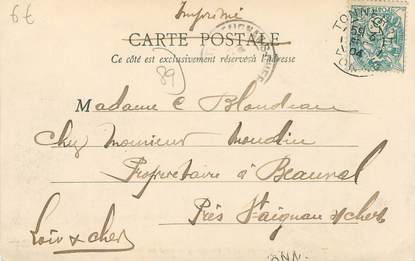 6€
Imprimé
CARTE POSTALE
Ce côté est exclusivement réservé à l'adresse
89
TONN
04
Madame C Blondeau
Chez Monsieur Moulin
Propriétaire à Beauval
Près St Aignan s/cher
Loir & cher
TONN